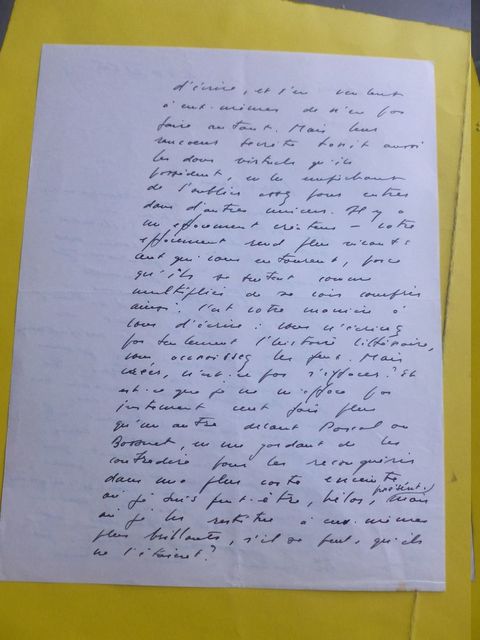 d'écrire, et s'en veulent
à eux-mêmes de n'en pas
faire autant. Mais leur
rancoeur secrète tarit aussi
les dons virtuels qu'ils
possèdent, en les empêchant
de s'oublier assez pour entrer
dans d'autres univers. Il y a
un effacement créateur – votre
effacement rend plus vivants
ceux qui vous entourent, parce
qu'ils se sentent comme
multipliés de se voir compris
ainsi. C'est votre manière à
vous d'écrire : vous n'écrivez
pas seulement l'histoire littéraire,
vous accroissez les gens. Mais
créer, n'est-ce pas s'effacer? Et
est-ce que je ne m'efface pas
justement cent fois plus
qu'un autre devant Pascal ou
Bossuet, en me gardant de les
contredire pour les reconquérir
dans une plus vaste enceinte
où je suis peut-être, hélas, présent, mais
où je les restitue à eux-mêmes
plus brillants, s'il se peut, qu'ils
ne l'étaient?